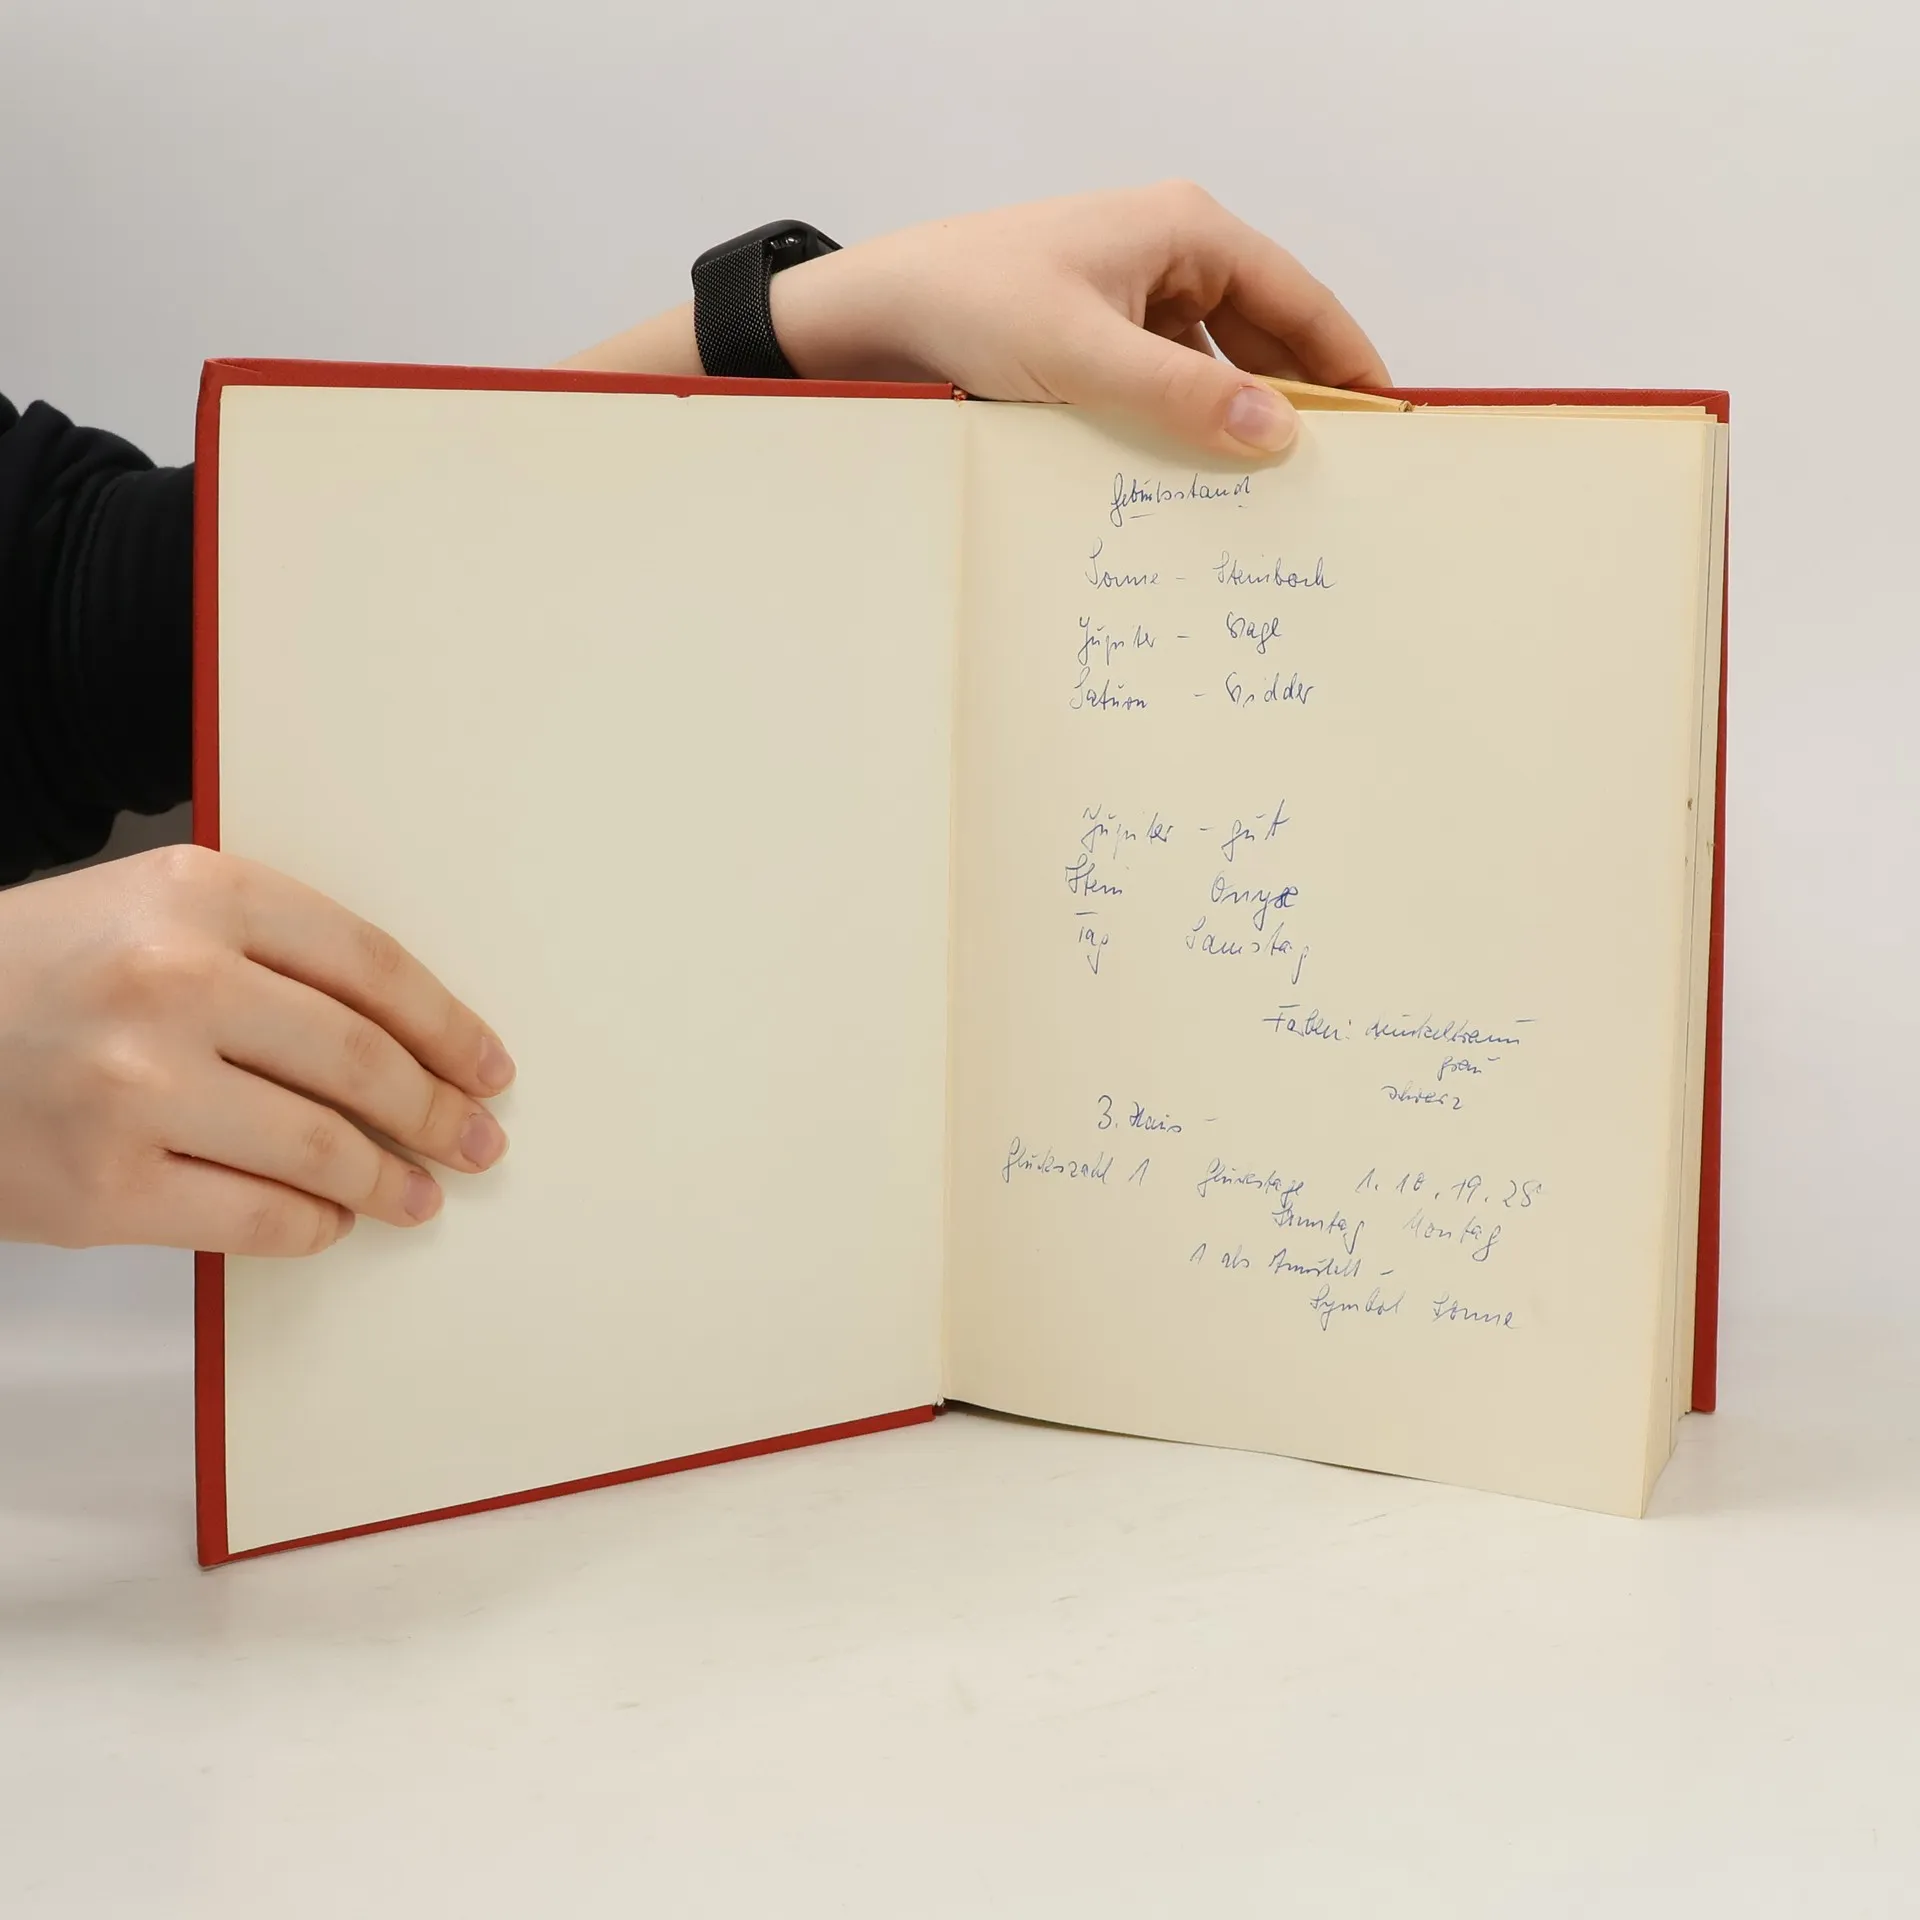 Geburtsstand
Sonne - Steinbock
Jupiter - Wage
Saturn - Widder
Jupiter - gut
Stein Onyx
Tag Samstag
Farben: dunkelbraun
grau
schwarz
3. Haus -
Glückszahl 1 Glückstage 1. 10. 19. 28
Sonntag Montag
1 als
Symbol Sonne